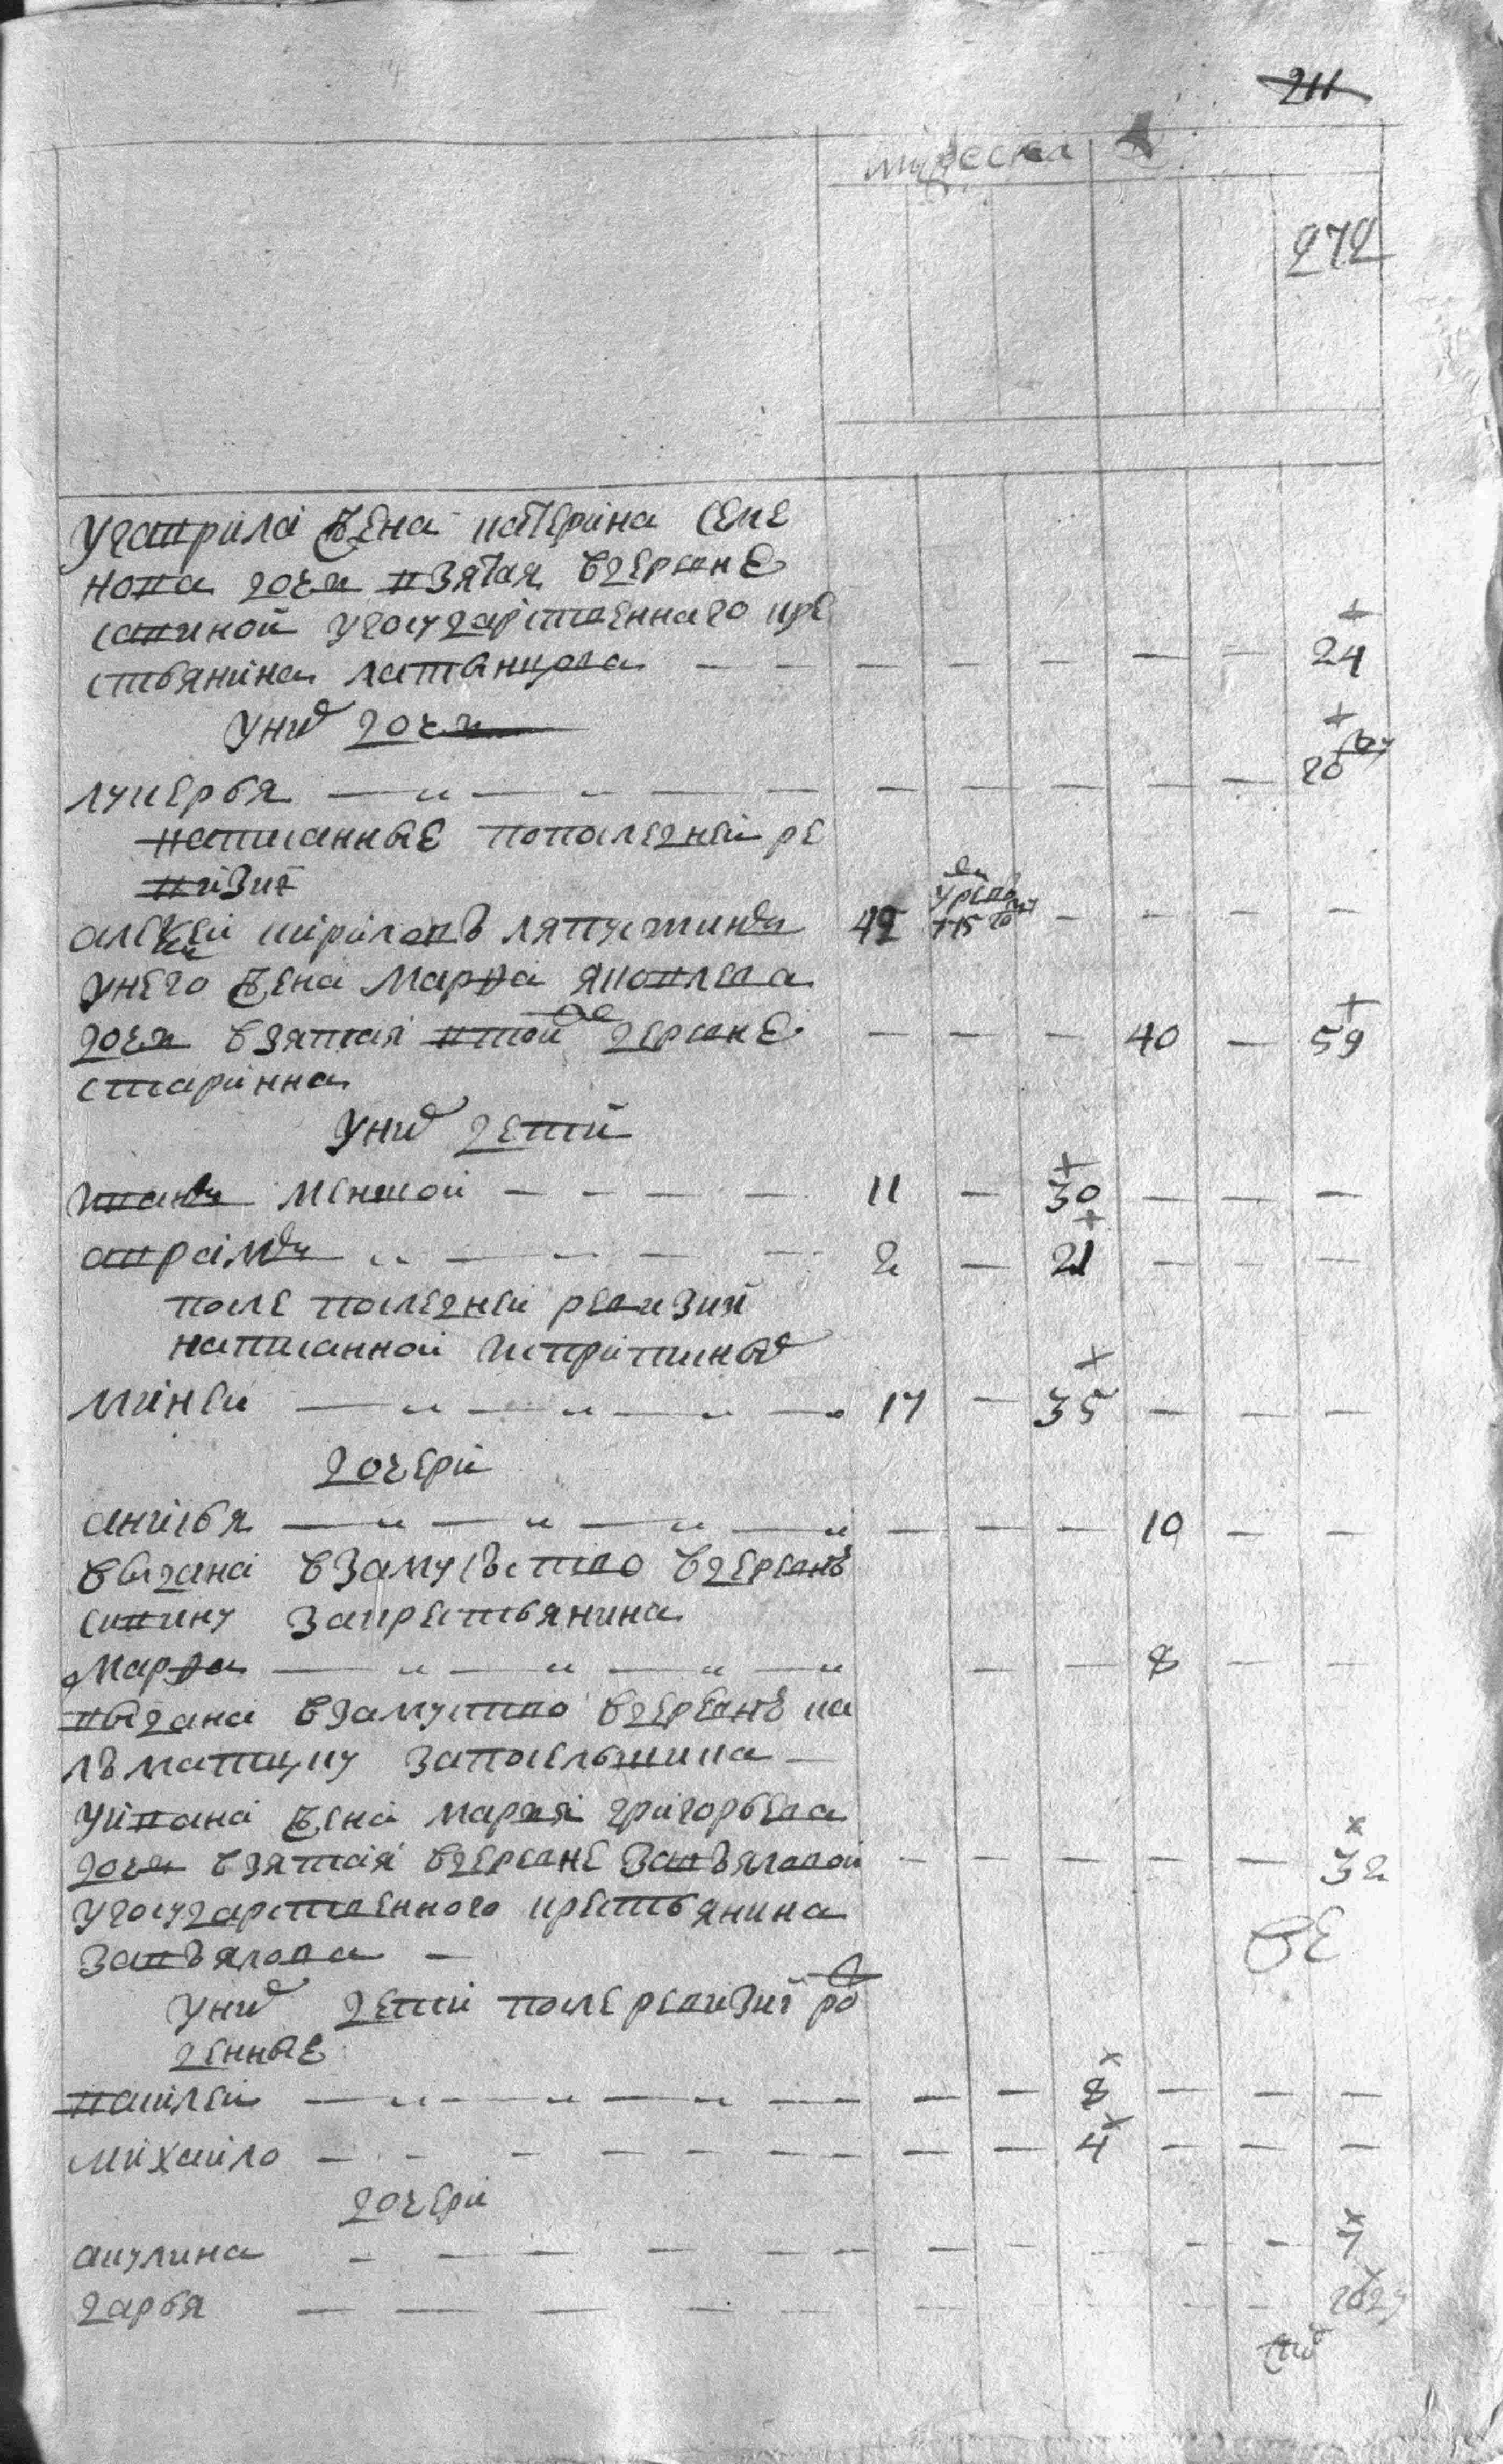 211
мужеска
272
У гаврила жена катерина семе
нова дочь взятая вдеревне
савиной угосударственнаго кре
стьянина латынцова — — — — — — — — 24
Уних дочь
лукерья — — — — — — — — — — — 20
написанные попоследней ре
визие
алексей кириловъ ляпустинъ 42 умре в 795 го — — — —
унего жена марфа яковлева
дочь взятая втой же деревне — — — 40 — 59
старинна
Уних детей
иванъ меншой — — — — 11 — 30 — — —
авраамъ — — — — 2 — 21 — — —
после последней ревизии
написанной исприписных
миней — — — — 17 — 35 — — —
дочери
анисья — — — — — — — 10 — —
выдана взамужство вдеревнъ
савину закрестьянина
марфа — — — — — — 8 — —
выдана взамуство вдеревнъ ка
лъматцку запосельшика —
Уивана жена марья григорьева
дочь взятая вдеревне завъяловой — — — — — 32
угосударственного крестьянина
завъялова —
уних детей после ревизии ро
жденные
василей — — — — — — 8 — — —
михайло — — — — — — 4 — — —
дочери
акулина — — — — — — — — — — 7
дарья — — — — — — — — — —